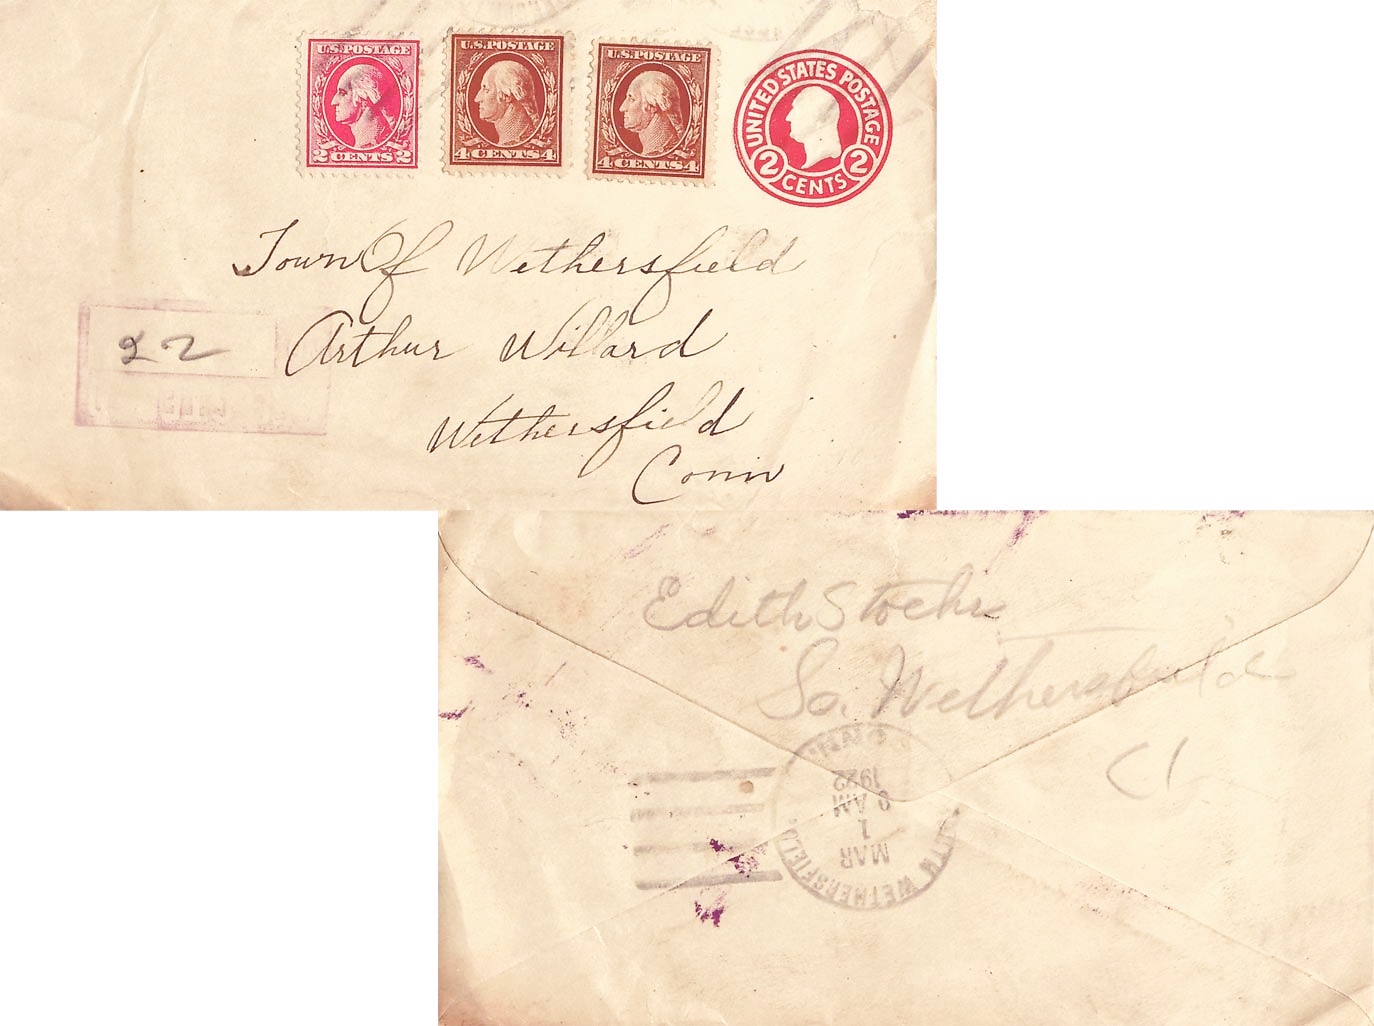 U.S. POSTAGE
2 CENTS 2
U.S. POSTAGE
4 CENTS 4
U.S. POSTAGE
4 CENTS 4
UNITED STATES POSTAGE
2 CENTS 2
Town Of Wethersfield
22
Arthur Willard
Wethersfield
Conn
Edith Stoehr
So. Wethersfield
Ct
SOUTH WETHERSFIELD. CONN.
MAR
1
9 AM
1922